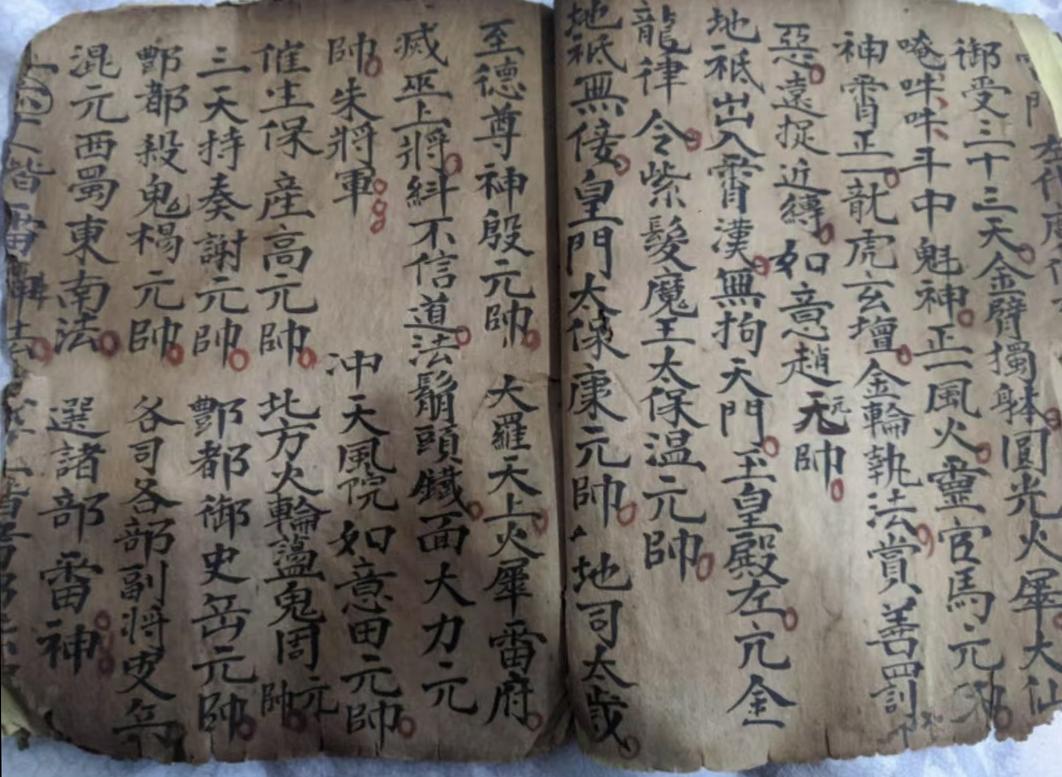 門
御受三十三天金臂獨躰圓光火犀大仙
唵吽吽斗中魁神正一風火靈官馬元
神霄正一龍虎玄壇金輪執法賞善罰
惡遠捉近縛如意趙元帥
地祇出入霄漢無拘天門玉皇殿左亢金
龍律令紫髮魔王太保温元帥
地祇無佞皇門太保康元帥地司太歲
至德尊神殷元帥大羅天上火犀雷府
滅巫上將糾不信道法鬅頭鐵面大力元
帥朱將軍冲天風院如意田元帥
催生保産高元帥北方火輪盪鬼周元帥
三天持奏謝元帥酆都御史岳元帥
酆都殺鬼楊元帥各司各部副將
混元西蜀東南法選諸部雷神
皆雷